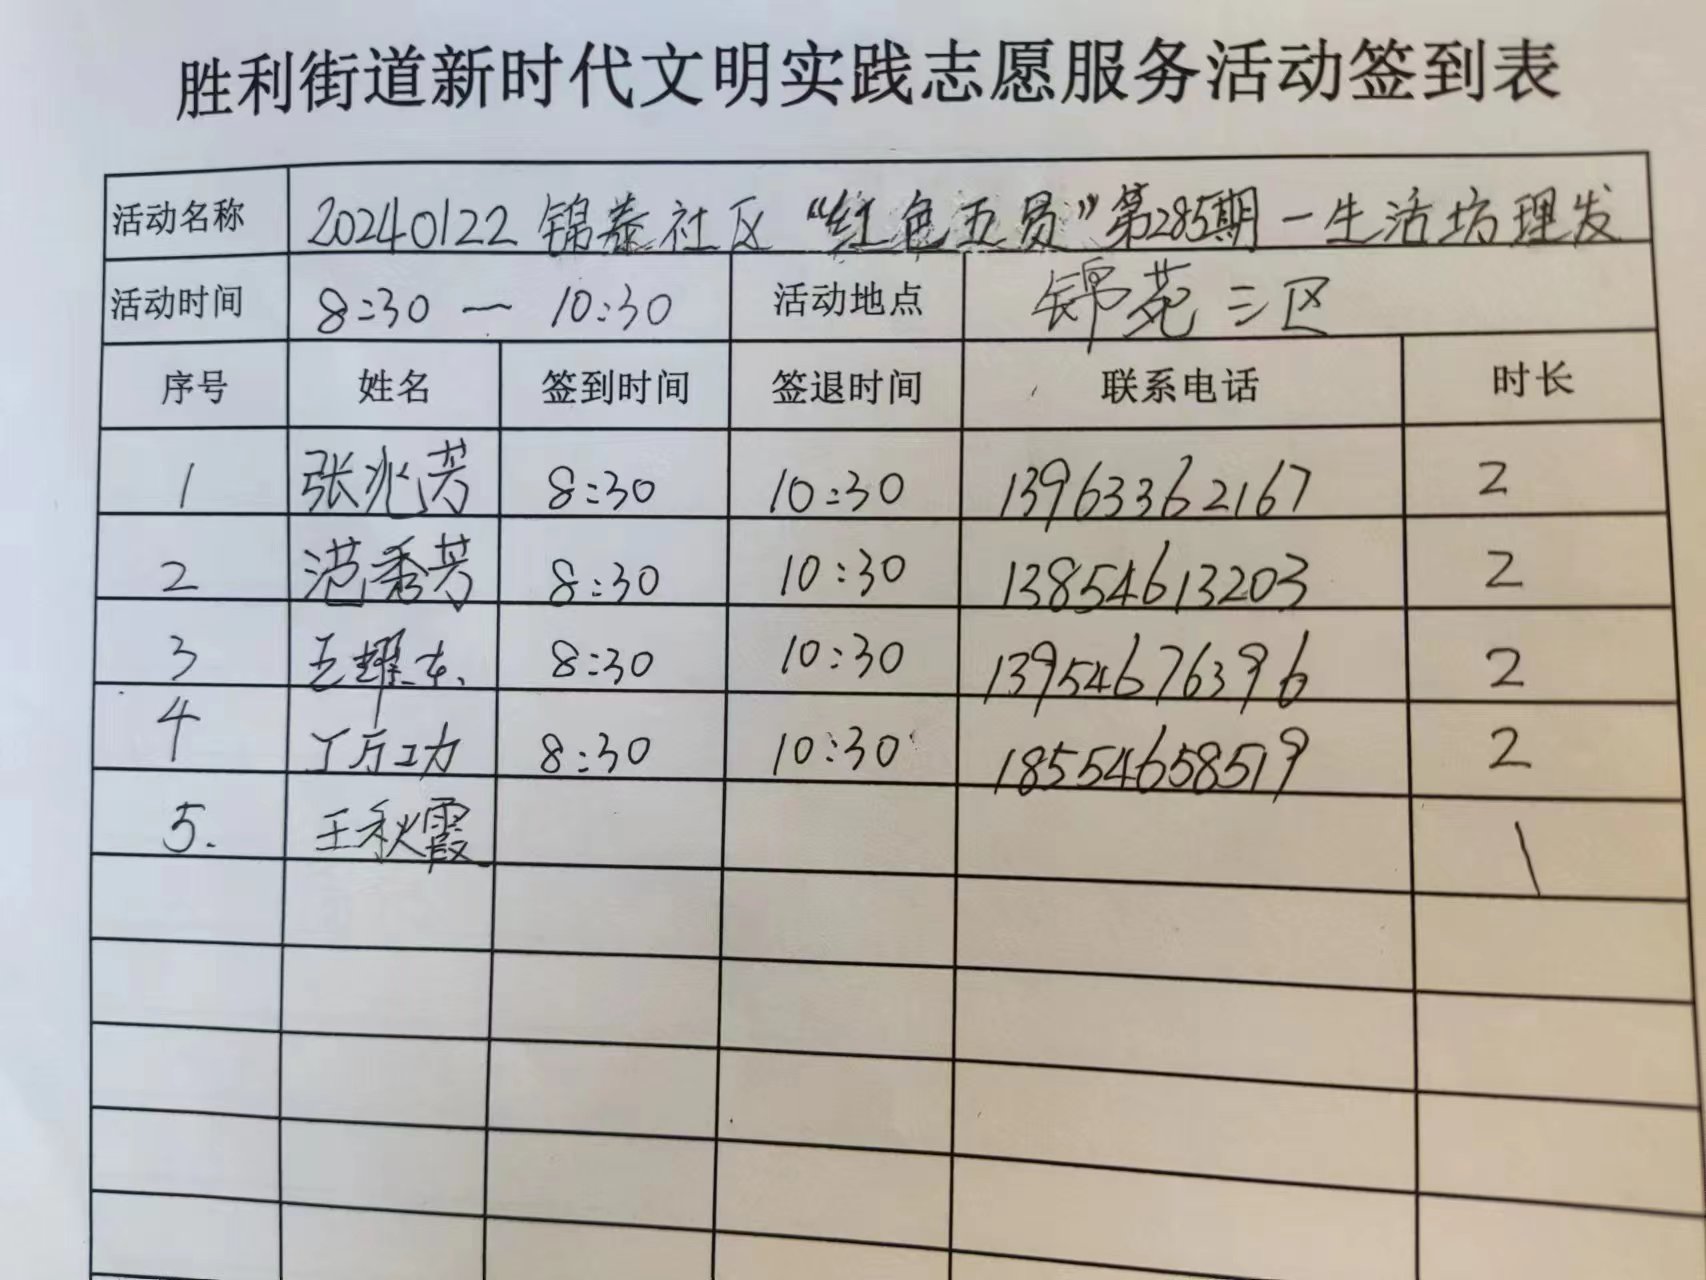 胜利街道新时代文明实践志愿服务活动签到表
活动名称 20240122 锦泰社区“红色五员”第285期一生活坊理发
活动时间 8:30 一 10:30 活动地点 锦苑三区
序号 姓名 签到时间 签退时间 联系电话 时长
1 张兆芳 8:30 10:30 13963362167 2
2 范秀芳 8:30 10:30 13854613203 2
3 王耀东 8:30 10:30 13954676396 2
4 丁万功 8:30 10:30 18554658519 2
5. 王秋霞 \